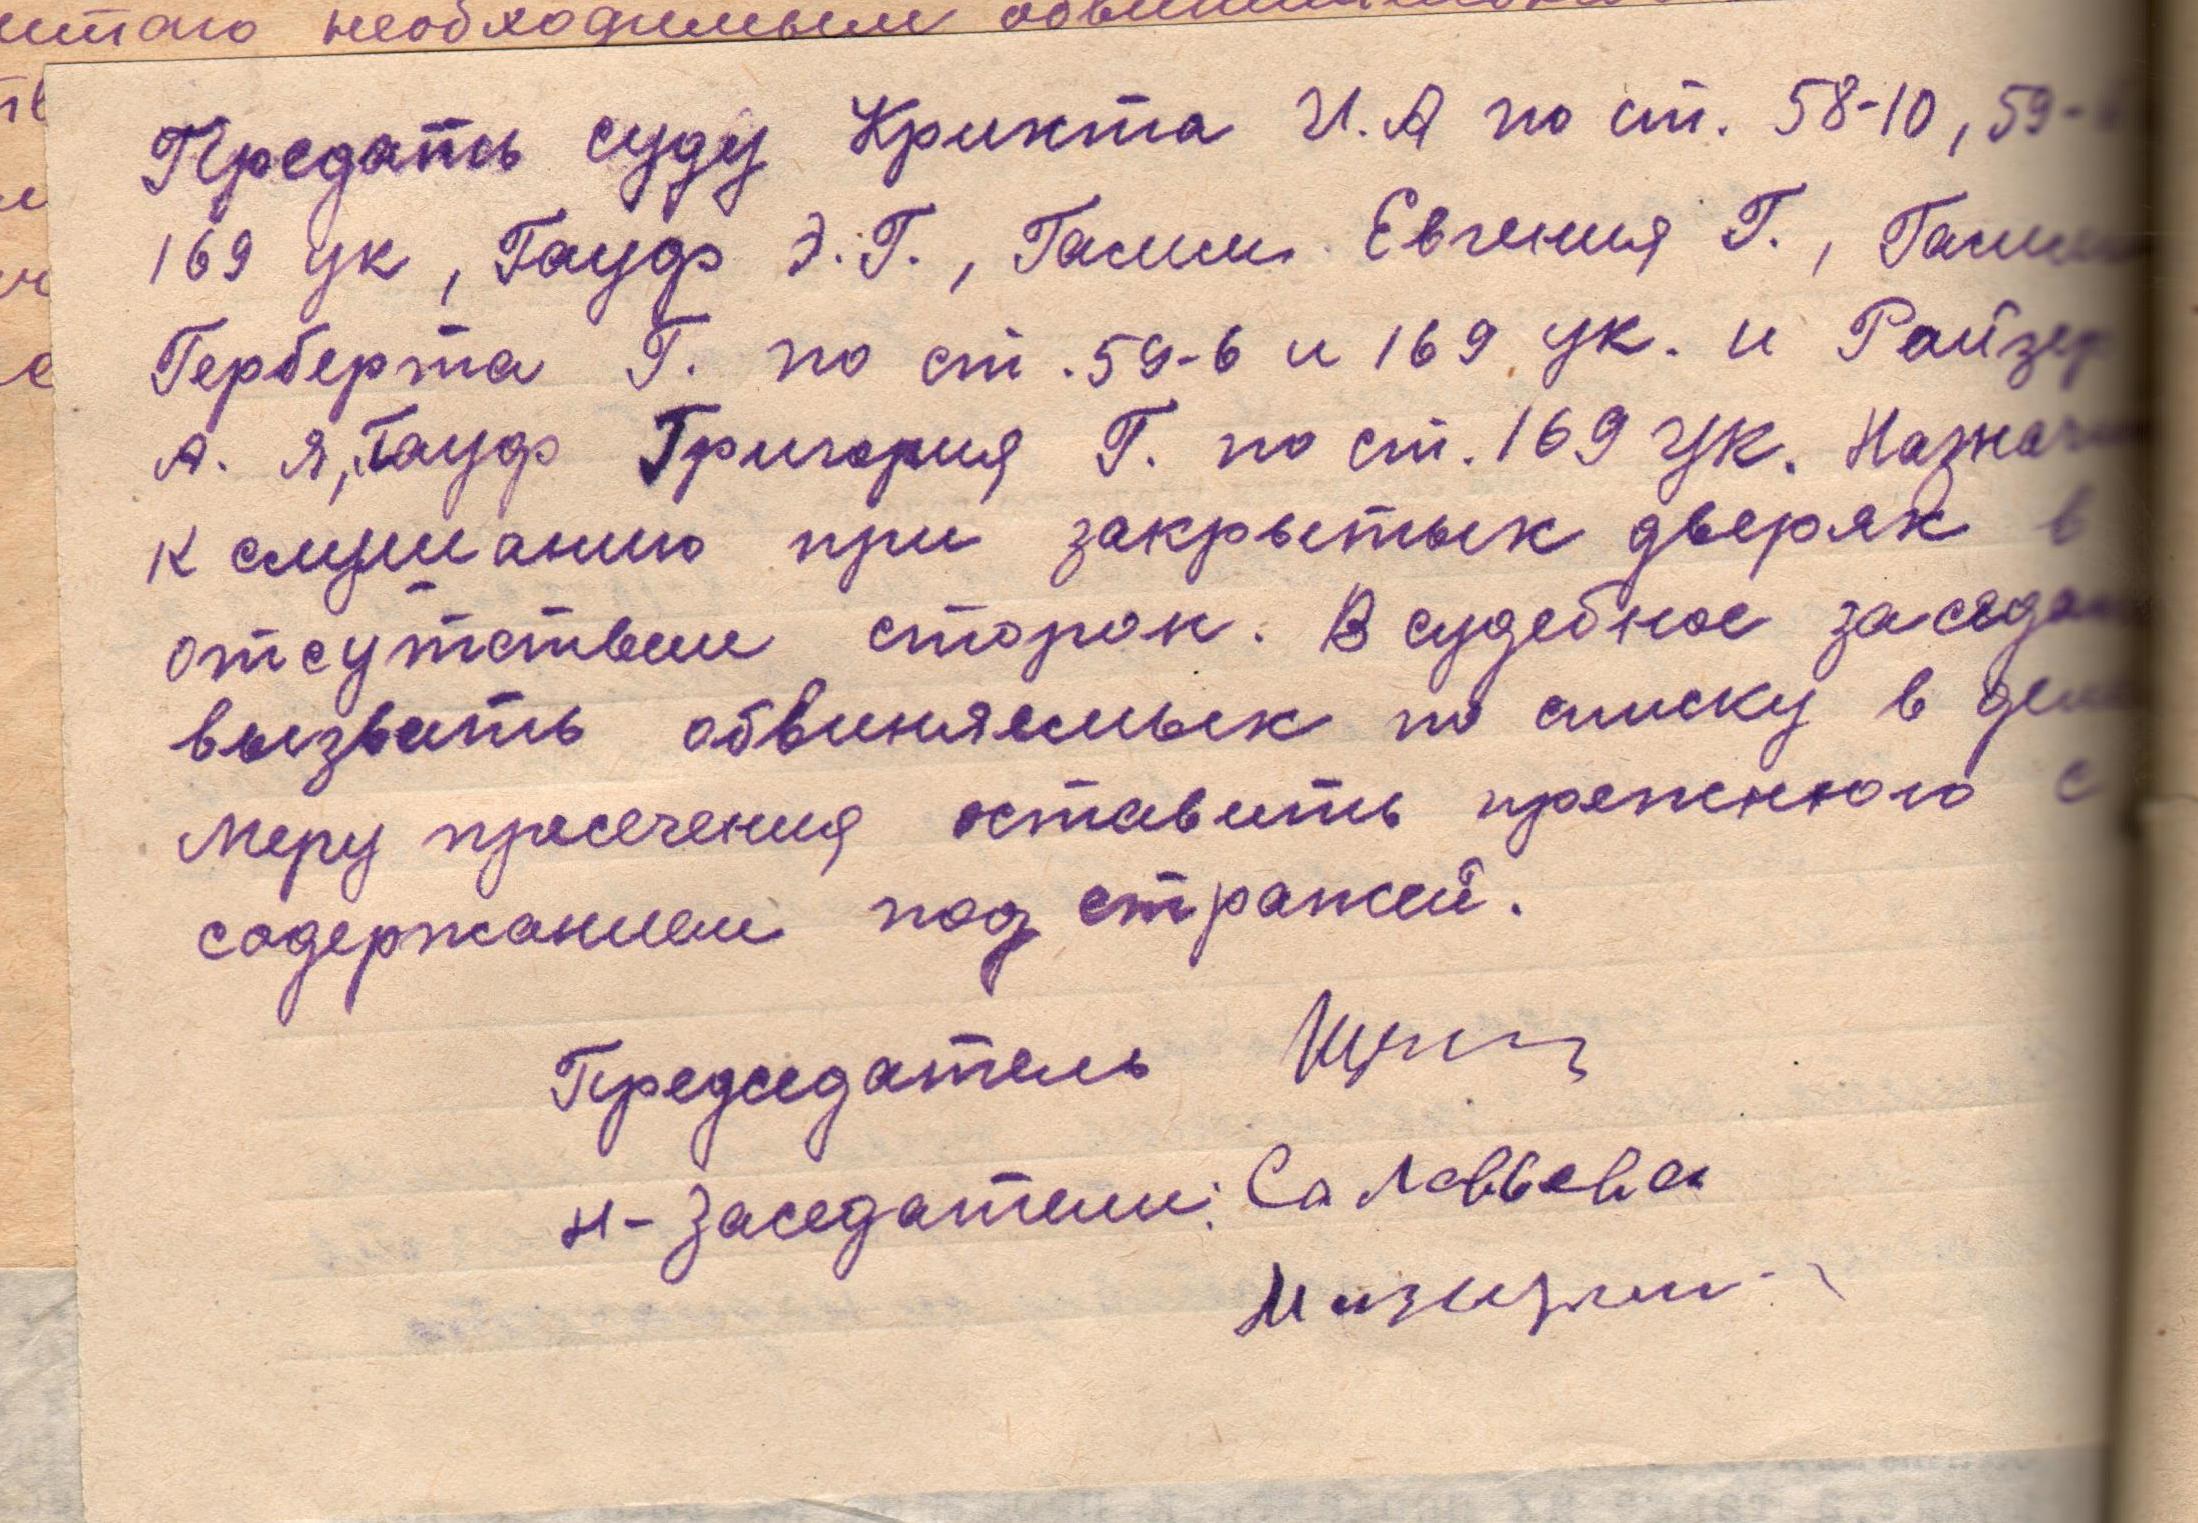 считаю необходимым
Предать суду Крикта И.А по ст. 58-10, 59-6
169 УК, Гауф Э.Г., Гамм Евгения Г., Гамм
Герберта Г. по ст. 59-6 и 169 УК. и Райзер
А. Я, Гауф Григория Г. по ст. 169 УК. Назначи
к слушанию при закрытых дверях в
отсутствии сторон. В судебное заседан
вызвать обвиняемых по списку в деле
Меру пресечения оставить прежнюю с
содержанием под стражей.
Председатель
н-заседатели: Саловьева